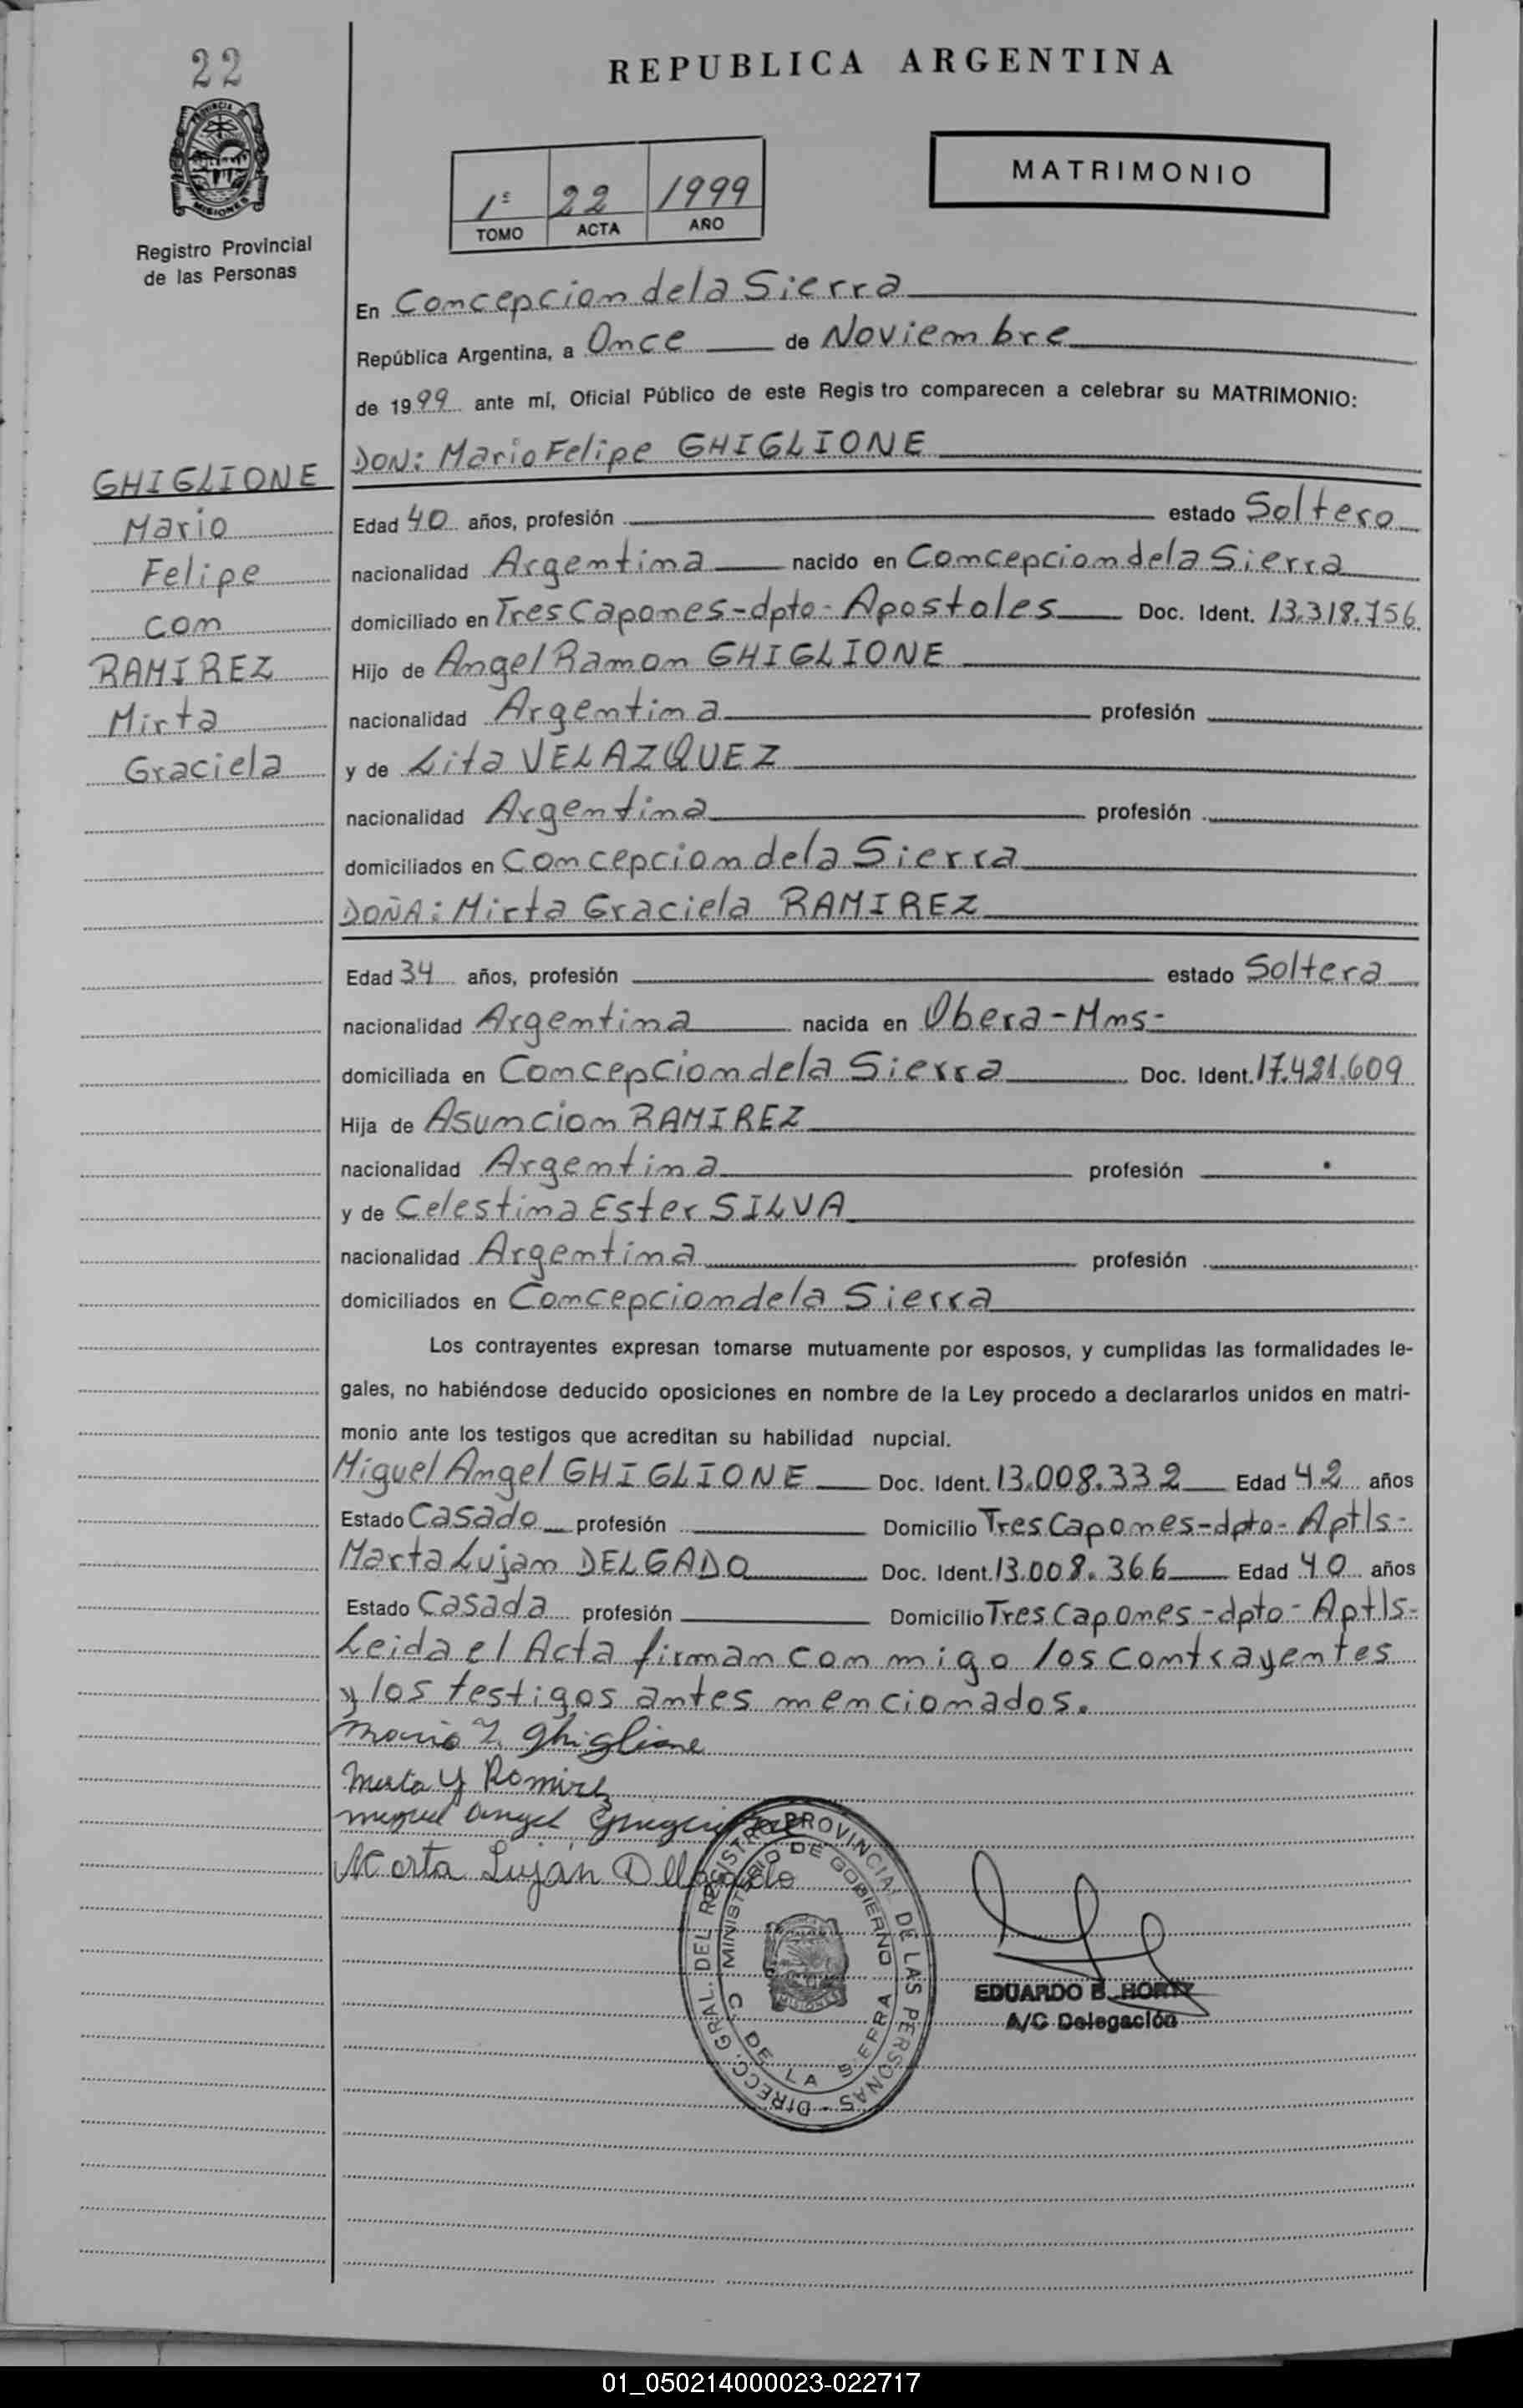 22
REPUBLICA ARGENTINA
PROVINCIA
MISIONES
Registro Provincial
de las Personas
MATRIMONIO
1º 22 1999
TOMO ACTA AÑO
En Concepcion de la Sierra
República Argentina, a Once de Noviembre
de 1999 ante mí, Oficial Público de este Regis tro comparecen a celebrar su MATRIMONIO:
DON: Mario Felipe GHIGLIONE
GHIGLIONE
Mario
Felipe
con
RAMIREZ
Mirta
Graciela
Edad 40 años, profesión estado Soltero
nacionalidad Argentina nacido en Concepcion de la Sierra
domiciliado en Tres Capones-dpto- Apostoles Doc. Ident. 13.318.756
Hijo de Angel Ramon GHIGLIONE
nacionalidad Argentina profesión
y de Lita VELAZQUEZ
nacionalidad Argentina profesión
domiciliados en Concepcion de la Sierra
DOÑA: Mirta Graciela RAMIREZ
Edad 34 años, profesión estado Soltera
nacionalidad Argentina nacida en Obera-Mns-
domiciliada en Concepcion de la Sierra Doc. Ident. 17.421.609
Hija de Asuncion RAMIREZ
nacionalidad Argentina profesión
y de Celestina Ester SILVA
nacionalidad Argentina profesión
domiciliados en Concepcion de la Sierra
Los contrayentes expresan tomarse mutuamente por esposos, y cumplidas las formalidades le-
gales, no habiéndose deducido oposiciones en nombre de la Ley procedo a declararlos unidos en matri-
monio ante los testigos que acreditan su habilidad nupcial.
Miguel Angel GHIGLIONE Doc. Ident. 13.008.332 Edad 42 años
Estado Casado profesión Domicilio Tres Capones-dpto- Aptls-
Marta Lujan DELGADO Doc. Ident. 13.008.366 Edad 40 años
Estado Casada profesión Domicilio Tres Capones-dpto- Aptls-
Leida el Acta firman con migo los contrayentes
y los testigos antes mencionados.
Mario F. Ghiglione
Mirta G Ramirez
Miguel Angel Ghiglione
Marta Luján Delgado
DIRECC. GRAL. DEL REGISTRO PROVINCIAL DE LAS PERSONAS
MINISTERIO DE GOBIERNO
C. DE LA SIERRA
MISIONES
EDUARDO B. HORTT
A/C Delegación
01_050214000023-022717